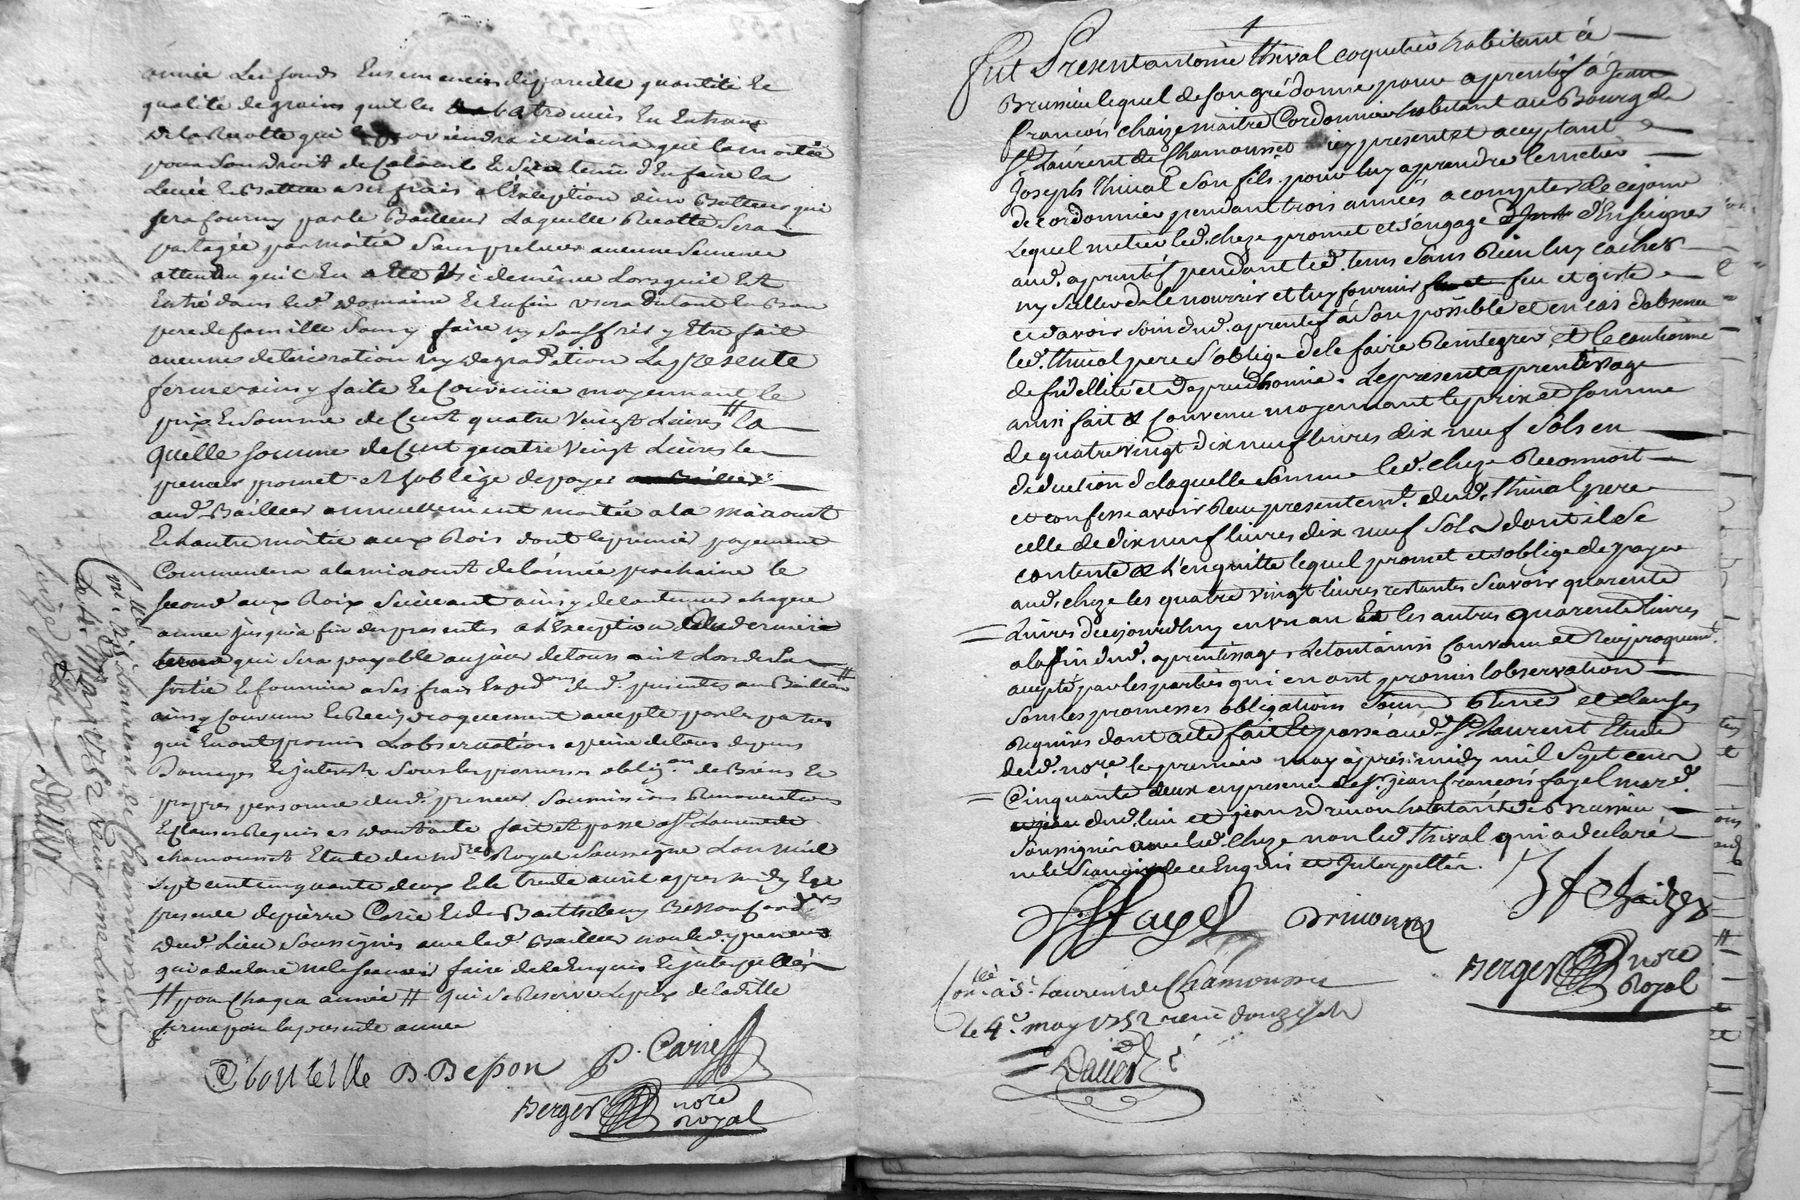 année Les fonds Ensemencés de pareille quantité Et
qualité de grains quil les a trouvés En Entrant
de la Recolte qui proviendra il n'aura que la moitié
pour son droit de Colon Et Sera tenu d'En faire la
Levée Et Batture a ses frais a l'Exception d'un Batteur qui
sera fourny par le Bailleur Laquelle Recolte Sera
partagée par moitié Sans prelever aucune Semence
attendu quil En a Eté Usé de même Lorsquil Est
Entré dans led. Domaine Et Enfin usera du tout En Bon
pere de famille Sans y faire ny Souffrir y Etre fait
aucunes deterioration ny degradation La presente
ferme ainsy faite Et Convenüe moyennant le
prix Et Somme de Cent quatre Vingt Livres # la
quelle Somme de Cent quatre Vingt Livres le
preneur promet Et soblige de payer
aud. Bailleur annuellement moitié a la miaoust
Et l'autre moitié aux Rois dont le premier payement
Commencera a la miaoust de l'année prochaine le
second aux Roix Suivant ainsy de Continuer chaque
année jusqu'a fin des presentes a l'Exception de la derniere
qui Sera payable au jour de touss aint Lors de Sa
Sortie Et fournira a Ses frais Expedon. des d. presentes au Bailleur #
ainsy Convenu Et Reciproquement accepté par les parties
qui En ont promis L'observation a peine de tous depens
Domages Et interests Sous les promesses obligaon. de Biens Et
propres personne dud. preneur Soumissions Renonciations
Et Clauses Requises dont acte fait et passé a St. Laurent de
chamousset Etude du nore. Royal Soussigné L'an mil
Sept cent cinquante deux Et le trente avril apres midy En
presence de pierre Carie Et de Barthelemy Besson
dud. Lieu Soussignés avec led. Bailleur non led. preneur
qui a declaré ne le Scavoir faire de ce Enquis Et interpellé
# pour Chaque année # qui se Reserve Le prix de ladite
ferme pour la presente année
B Besson P. Carie
Berger nore
Royal
Conllé à St. Laurent de Chamousset
le 4e. May 1752 reçu
Fut Present antoine thival coquetier habitant à
Brussieu lequel de son gré donne pour aprentif à Jean
françois chaize maitre Cordonnier habitant au Bourg de
St. Laurent de Chamousset icy present et acceptant
Joseph thival Son fils, pour luy aprendre le metier
de cordonnier pendant trois années a compter de ce jour
Lequel metier led. cheze promet et s'engage d'Enseigner
aud. aprentif pendant led. tems Sans Rien luy cacher
ny Seller de le nourrir et luy fournir feu et giste
et d'avoir soin dud. aprentif à Son possible et en cas d'absence
led. thival pere S'oblige de le faire Reintegrer, et le cautionne
de fidellité et de prudhomie. Le present aprentissage
ainsi fait & convenu moyennant le prix et somme
de quatre vingt dix neuf livres dix neuf Sols en
déduction de laquelle Somme led. cheze Reconnoit
et confesse avoir Reçu presentemt. dud. thival pere
celle de dix neuf livres dix neuf Sols dont il Se
contente & l'en quitte lequel promet et s'oblige de payer
aud. cheze les quatre vingt livres restantes Scavoir quarente
Livres d'aujourdhuy en un an Et les autres quarente livres
a la fin dud. aprentissage, Le tout ainsi Convenu et Reciproquemt.
accepté par les parties qui en ont promis l'observation
Sous les promesses obligations Soum Renc et clauses
Requises dont acte fait et passé aud. St. Laurent Etude
dud. nore. le premier may après midy mil Sept cent
Cinquante deux en presence de Sr. jean françois fayel mard.
dud. lieu et jean drimon habitant de Brussieu
Soussignés avec led. Cheze non led. thival qui a declaré
ne le Scavoir de ce Enquis et Interpellé.
JF fayel Drimon J f Chaize
Berger nore
Royal
Conllé à St. Laurent de Chamousset
le 4e. may 1752 reçu douze sols